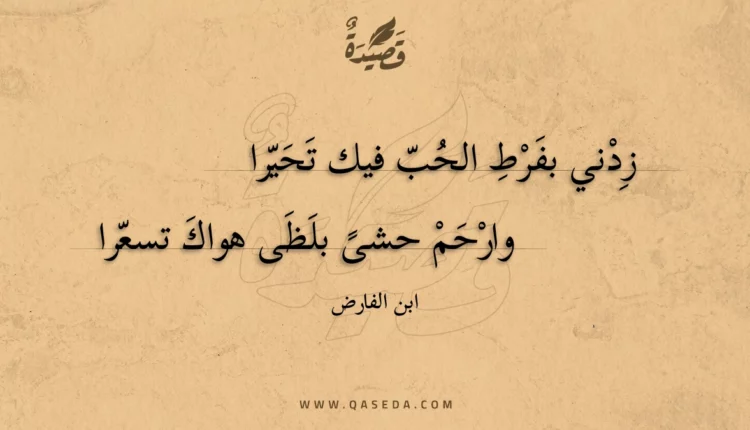 قَصِيدَةٌ
زِدْني بفَرْطِ الحُبّ فيك تَحَيّرا
وارْحَمْ حشىً بلَظَى هواكَ تسعّرا
ابن الفارض
WWW.QASEDA.COM